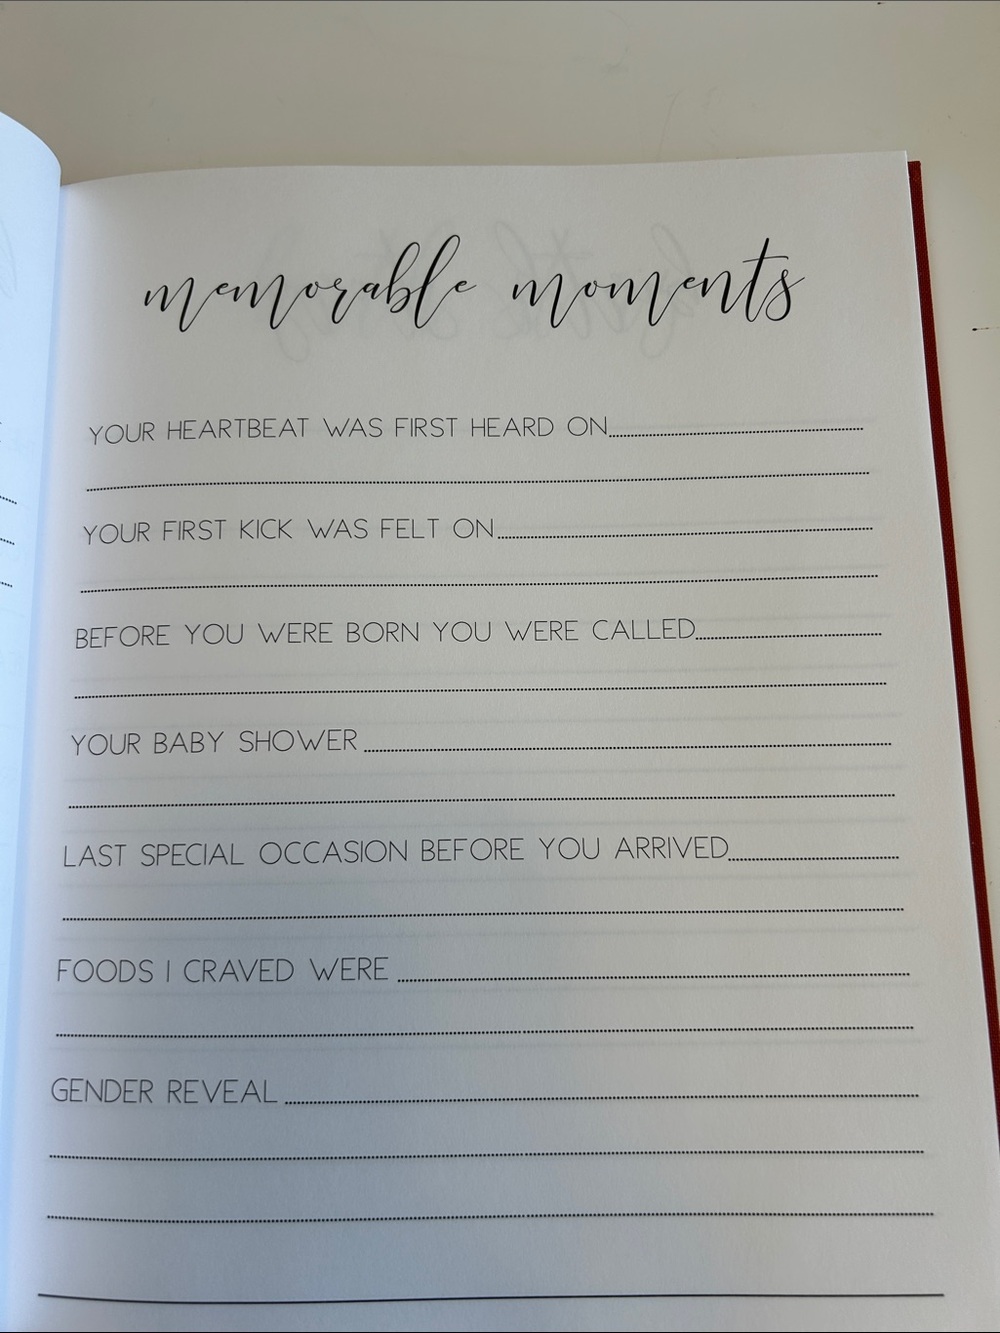 memorable moments
YOUR HEARTBEAT WAS FIRST HEARD ON
YOUR FIRST KICK WAS FELT ON
BEFORE YOU WERE BORN YOU WERE CALLED
YOUR BABY SHOWER
LAST SPECIAL OCCASION BEFORE YOU ARRIVED
FOODS I CRAVED WERE
GENDER REVEAL